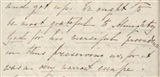 and get up. We ought to
be most grateful to Almighty
God for his merciful providence
in thus preserving us, for it
was a very narrow escape.